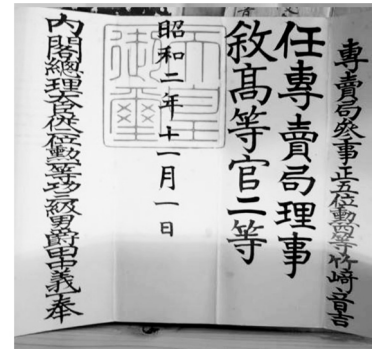 專賣局參事正五位勳四等竹﨑音吉
任專賣局理事
敘高等官二等
天皇御璽
昭和二年十一月一日
內閣總理大臣從二位勳一等功三級男爵田中義一奉